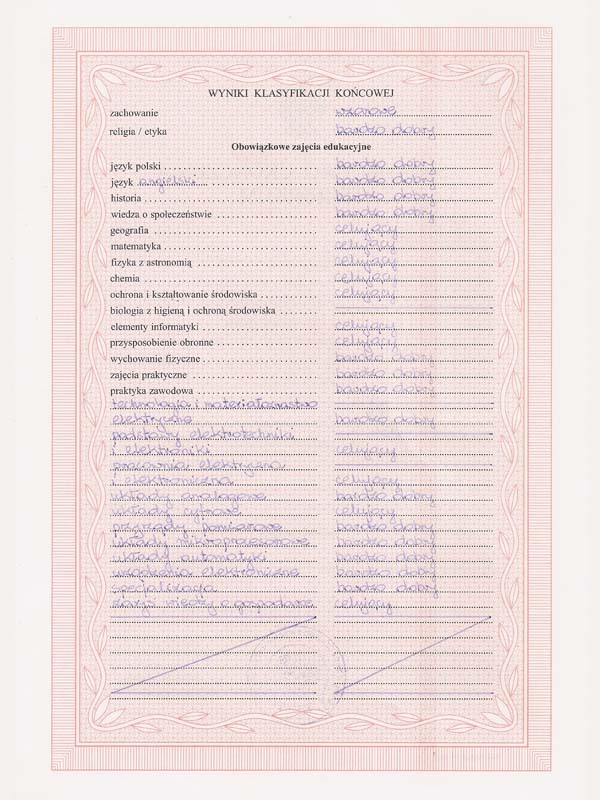 WYNIKI KLASYFIKACJI KOŃCOWEJ
zachowanie wzorowe
religia / etyka bardzo dobry
Obowiązkowe zajęcia edukacyjne
język polski bardzo dobry
język angielski bardzo dobry
historia bardzo dobry
wiedza o społeczeństwie bardzo dobry
geografia celujący
matematyka celujący
fizyka z astronomią celujący
chemia celujący
ochrona i kształtowanie środowiska celujący
biologia z higieną i ochroną środowiska
elementy informatyki celujący
przysposobienie obronne celujący
wychowanie fizyczne bardzo dobry
zajęcia praktyczne bardzo dobry
praktyka zawodowa bardzo dobry
technologia i materiałoznastwo
elektryczne bardzo dobry
podstawy elektrotechniki
i elektroniki celujący
pracownia elektryczna
i elektroniczna celujący
układy analogowe bardzo dobry
układy cyfrowe celujący
przyrządy pomiarowe bardzo dobry
układy mikroprocesorowe bardzo dobry
układy automatyki bardzo dobry
urządzenia elektroniczne bardzo dobry
specjalizacja bardzo dobry
zarys wiedzy o gospodarce celujący